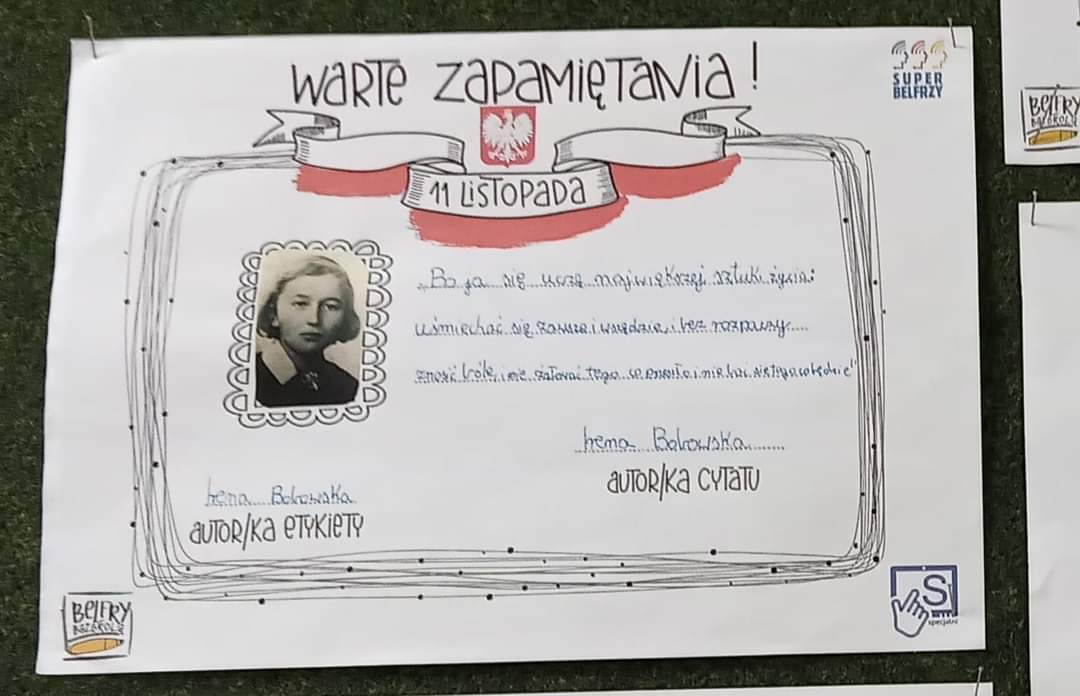 WARTE ZAPAMIĘTANIA!
SUPER
BELFRZY
11 LISTOPADA
„Bo ja się uczę największej sztuki życia:
uśmiechać się zawsze i wszędzie i bez rozpaczy
znosić bóle, i nie żałować tego co przeszło i nie bać się tego co będzie"
Irena Bobowska
AUTOR/KA CYTATU
Irena Bobowska
AUTOR/KA ETYKIETY
BELFRY
BAZGROLĄ
S
specjalni
BELFRY
BAZGROLĄ